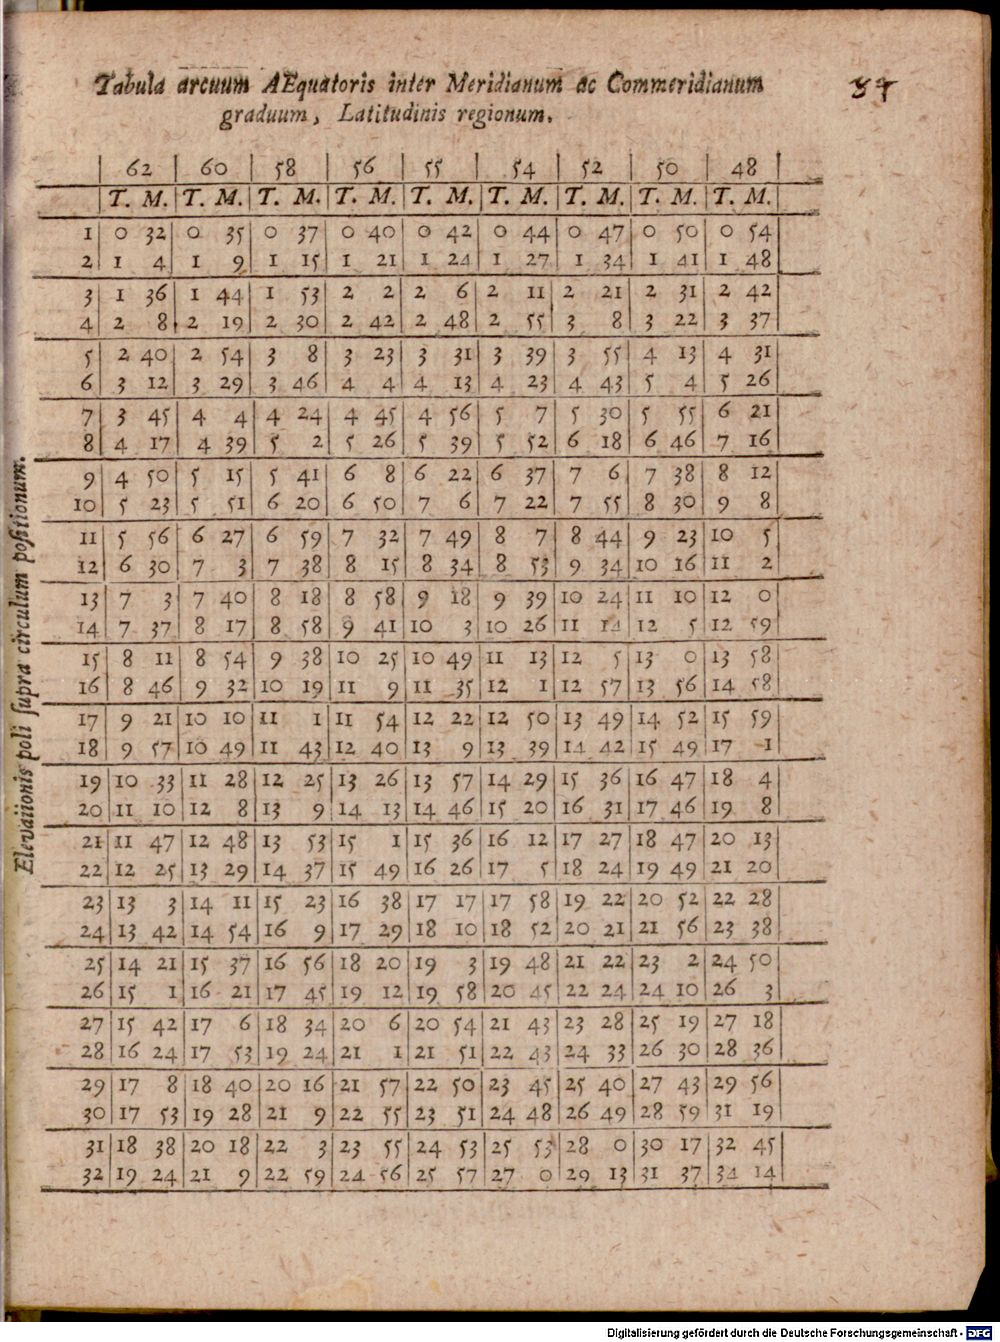 Tabula arcuum AEquatoris inter Meridianum ac Commeridianum
graduum, Latitudinis regionum.
37
62 60 58 56 55 54 52 50 48
T. M. T. M. T. M. T. M. T. M. T. M. T. M. T. M. T. M.
1 0 32 0 35 0 37 0 40 0 42 0 44 0 47 0 50 0 54
2 1 4 1 9 1 15 1 21 1 24 1 27 1 34 1 41 1 48
3 1 36 1 44 1 53 2 2 2 6 2 11 2 21 2 31 2 42
4 2 8 2 19 2 30 2 42 2 48 2 55 3 8 3 22 3 37
5 2 40 2 54 3 8 3 23 3 31 3 39 3 55 4 13 4 31
6 3 12 3 29 3 46 4 4 4 13 4 23 4 43 5 4 5 26
7 3 45 4 4 4 24 4 45 4 56 5 7 5 30 5 55 6 21
8 4 17 4 39 5 2 5 26 5 39 5 52 6 18 6 46 7 16
9 4 50 5 15 5 41 6 8 6 22 6 37 7 6 7 38 8 12
10 5 23 5 51 6 20 6 50 7 6 7 22 7 55 8 30 9 8
11 5 56 6 27 6 59 7 32 7 49 8 7 8 44 9 23 10 5
12 6 30 7 3 7 38 8 15 8 34 8 53 9 34 10 16 11 2
13 7 3 7 40 8 18 8 58 9 18 9 39 10 24 11 10 12 0
14 7 37 8 17 8 58 9 41 10 3 10 26 11 14 12 5 12 59
15 8 11 8 54 9 38 10 25 10 49 11 13 12 5 13 0 13 58
16 8 46 9 32 10 19 11 9 11 35 12 1 12 57 13 56 14 58
17 9 21 10 10 11 1 11 54 12 22 12 50 13 49 14 52 15 59
18 9 57 10 49 11 43 12 40 13 9 13 39 14 42 15 49 17 1
19 10 33 11 28 12 25 13 26 13 57 14 29 15 36 16 47 18 4
20 11 10 12 8 13 9 14 13 14 46 15 20 16 31 17 46 19 8
21 11 47 12 48 13 53 15 1 15 36 16 12 17 27 18 47 20 13
22 12 25 13 29 14 37 15 49 16 26 17 5 18 24 19 49 21 20
23 13 3 14 11 15 23 16 38 17 17 17 58 19 22 20 52 22 28
24 13 42 14 54 16 9 17 29 18 10 18 52 20 21 21 56 23 38
25 14 21 15 37 16 56 18 20 19 3 19 48 21 22 23 2 24 50
26 15 1 16 21 17 45 19 12 19 58 20 45 22 24 24 10 26 3
27 15 42 17 6 18 34 20 6 20 54 21 43 23 28 25 19 27 18
28 16 24 17 53 19 24 21 1 21 51 22 43 24 33 26 30 28 36
29 17 8 18 40 20 16 21 57 22 50 23 45 25 40 27 43 29 56
30 17 53 19 28 21 9 22 55 23 51 24 48 26 49 28 59 31 19
31 18 38 20 18 22 3 23 55 24 53 25 53 28 0 30 17 32 45
32 19 24 21 9 22 59 24 56 25 57 27 0 29 13 31 37 34 14
Elevationis poli supra circulum positionum.
Digitalisierung gefördert durch die Deutsche Forschungsgemeinschaft - DFG